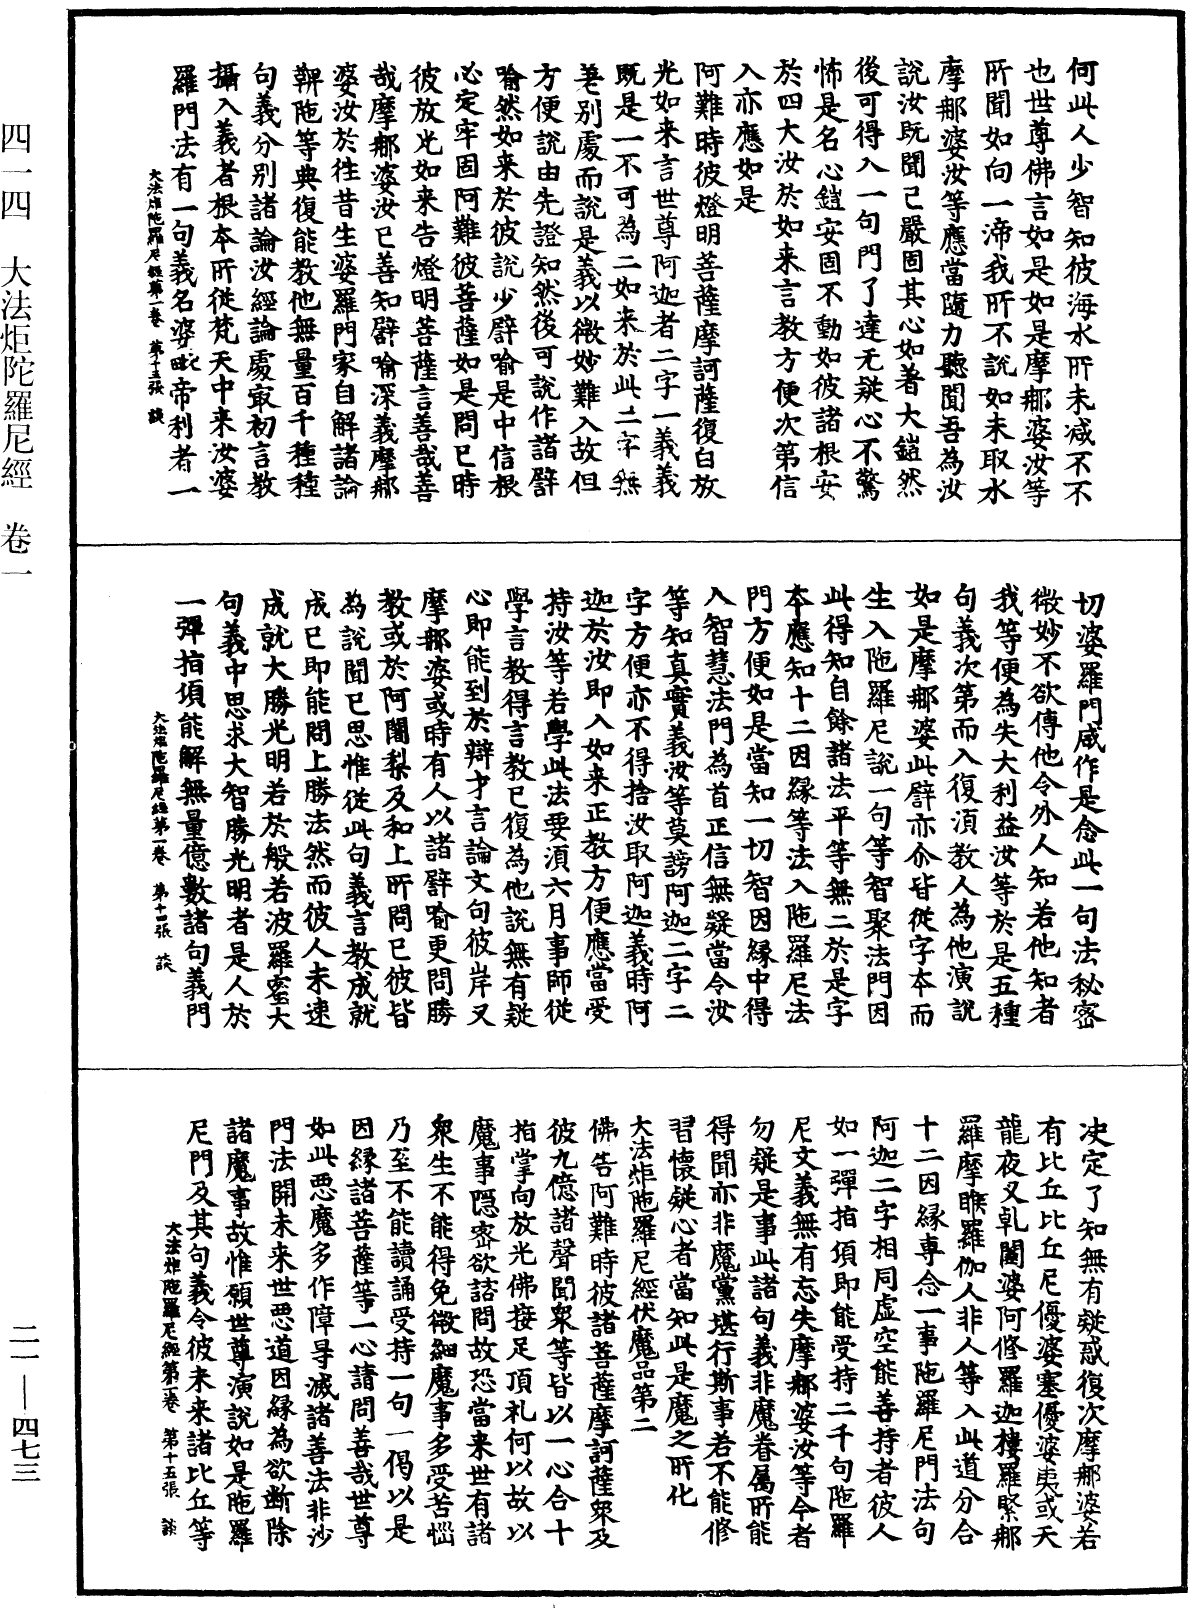 何此人少智知彼海水所未減不不
也世尊佛言如是如是摩那婆汝等
所聞如向一渧我所不說如未取水
摩那婆汝等應當隨力聽聞吾為汝
說汝既聞已嚴固其心如著大鎧然
後可得入一句門了達无疑心不驚
怖是名心鎧安固不動如彼諸根安
於四大汝於如来言教方便次第信
入亦應如是
阿難時彼燈明菩薩摩訶薩復白放
光如来言世尊阿迦者二字一義義
既是一不可為二如来於此二字無
差別處而說是義以微妙難入故但
方便說由先證知然後可說作諸譬
喻然如来於彼說少譬喻是中信根
必定牢固阿難彼菩薩如是問已時
彼放光如来告燈明菩薩言善哉善
哉摩那婆汝已善知譬喻深義摩那
婆汝於往昔生婆羅門家自解諸論
鞞陁等典復能教他無量百千種種
句義分別諸論汝經論處㝡初言教
攝入義者根本所從梵天中来汝婆
羅門法有一句義名婆毗帝利者一
大法炬陁羅尼經第一卷 第十三張 談
切婆羅門咸作是念此一句法秘密
微妙不欲傳他令外人知若他知者
我等便為失大利益汝等於是五種
句義次第而入復湏教人為他演說
如是摩那婆此譬亦尒皆從字本而
生入陁羅尼說一句等智聚法門因
此得知自餘諸法平等無二於是字
本應知十二因緣等法入陁羅尼法
門方便如是當知一切智因緣中得
入智慧法門為首正信無疑當令汝
等知真實義汝等莫謗阿迦二字二
字方便亦不得捨汝取阿迦義時阿
迦於汝即入如来正教方便應當受
持汝等若學此法要湏六月事師從
學言教得言教已復為他說無有疑
心即能到於辯才言論文句彼岸又
摩那婆或時有人以諸譬喻更問勝
教或於阿闍梨及和上所問已彼皆
為說聞已思惟從此句義言教成就
成已即能問上勝法然而彼人未速
成就大勝光明若於般若波羅蜜大
句義中思求大智勝光明者是人於
一彈指頃能解無量億數諸句義門
大法炬陁羅尼經第一卷 第十四張 談
决定了知無有疑惑復次摩那婆若
有比丘比丘尼優婆塞優婆夷或天
龍夜叉乹闥婆阿修羅迦樓羅緊那
羅摩睺羅伽人非人等入此道分合
十二因緣専念一事陁羅尼門法句
阿迦二字相同虛空能善持者彼人
如一彈指頃即能受持二千句陁羅
尼文義無有忘失摩那婆汝等今者
勿疑是事此諸句義非魔眷属所能
得聞亦非魔黨堪行斯事若不能修
習懷疑心者當知此是魔之所化
大法炬陁羅尼經伏魔品第二
佛告阿難時彼諸菩薩摩訶薩衆及
彼九億諸聲聞衆等皆以一心合十
指掌向放光佛接足頂礼何以故以
魔事隱密欲諮問故恐當来世有諸
衆生不能得免微細魔事多受苦惱
乃至不能讀誦受持一句一偈以是
因緣諸菩薩等一心請問善哉世尊
如此惡魔多作障导滅諸善法非沙
門法開未来世惡道因緣為欲断除
諸魔事故惟願世尊演說如是陁羅
尼門及其句義令彼未来諸比丘等
大法炬陁羅尼經第一卷 第十五張 談
四一四 大法炬陀羅尼經 卷一
二一—四七三